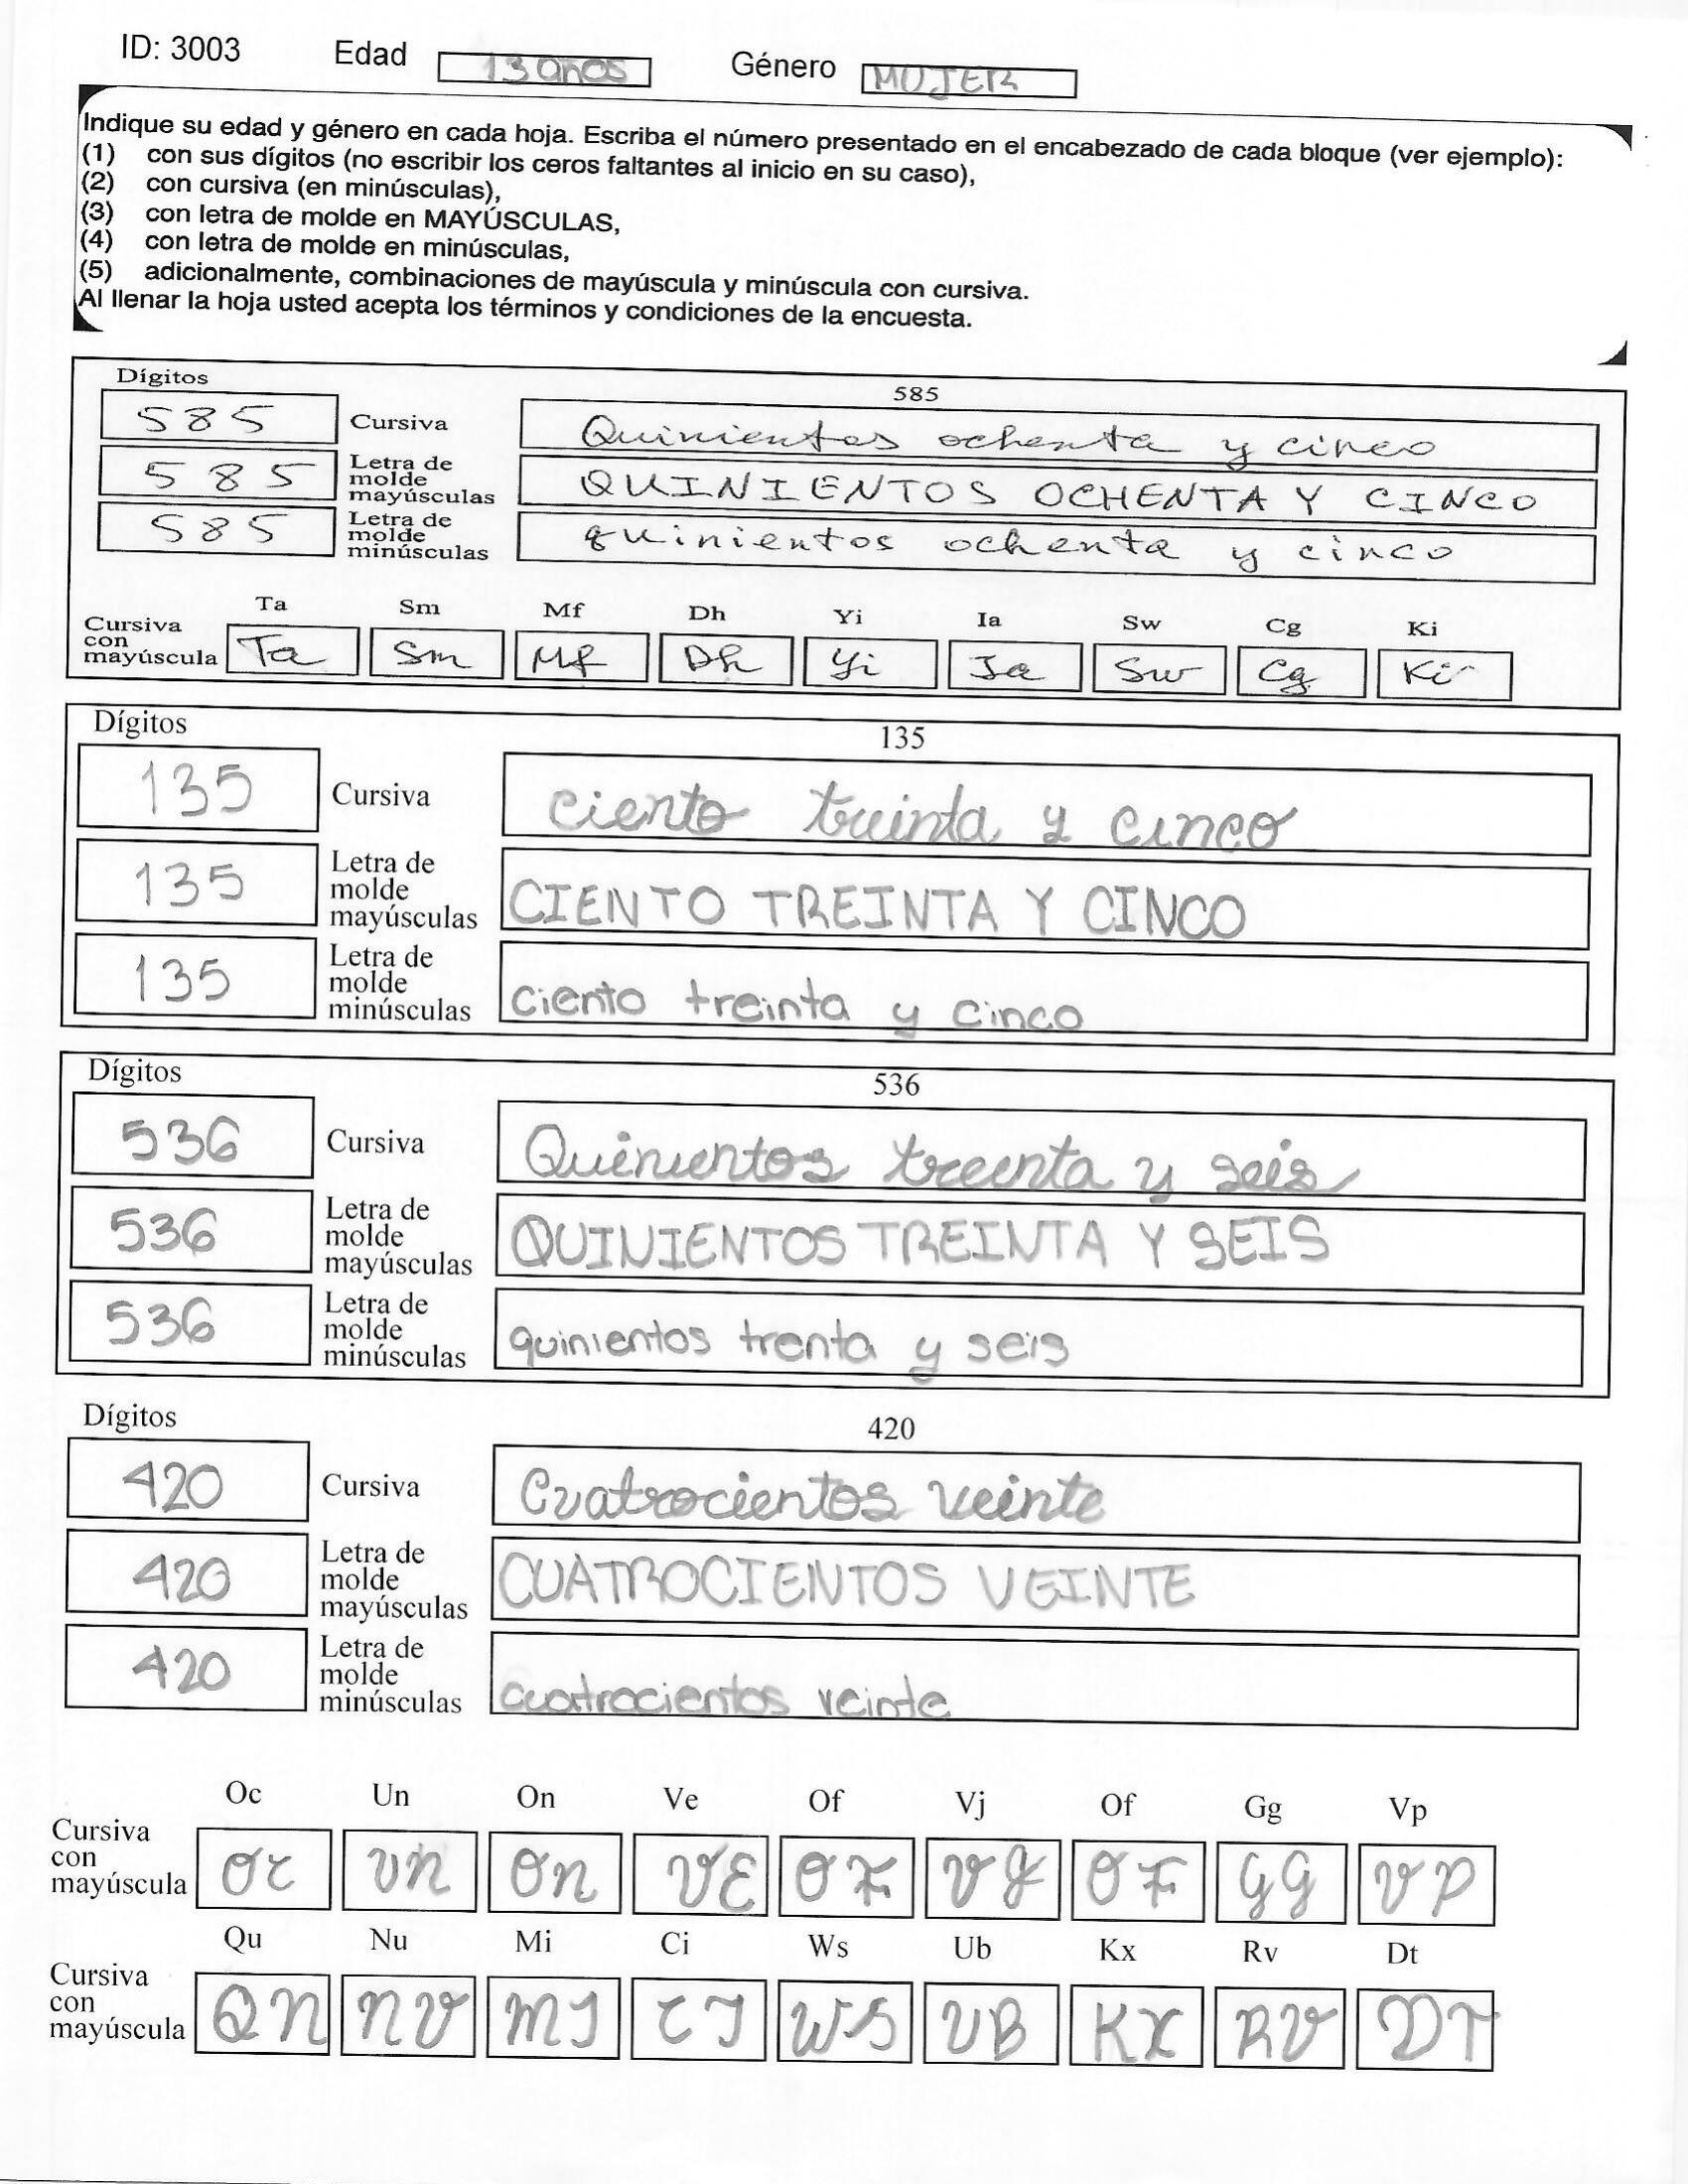 ID: 3003 Edad 13 años Género MUJER
Indique su edad y género en cada hoja. Escriba el número presentado en el encabezado de cada bloque (ver ejemplo):
(1) con sus dígitos (no escribir los ceros faltantes al inicio en su caso),
(2) con cursiva (en minúsculas),
(3) con letra de molde en MAYÚSCULAS,
(4) con letra de molde en minúsculas,
(5) adicionalmente, combinaciones de mayúscula y minúscula con cursiva.
Al llenar la hoja usted acepta los términos y condiciones de la encuesta.
Dígitos 585
585 Cursiva Quinientos ochenta y cinco
585 Letra de molde mayúsculas QUINIENTOS OCHENTA Y CINCO
585 Letra de molde minúsculas quinientos ochenta y cinco
Ta Sm Mf Dh Yi Ia Sw Cg Ki
Cursiva con mayúscula Ta Sm Mf Dh Yi Ia Sw Cg Ki
Dígitos 135
135 Cursiva ciento treinta y cinco
135 Letra de molde mayúsculas CIENTO TREINTA Y CINCO
135 Letra de molde minúsculas ciento treinta y cinco
Dígitos 536
536 Cursiva Quinientos treinta y seis
536 Letra de molde mayúsculas QUINIENTOS TREINTA Y SEIS
536 Letra de molde minúsculas quinientos trenta y seis
Dígitos 420
420 Cursiva Cuatrocientos veinte
420 Letra de molde mayúsculas CUATROCIENTOS VEINTE
420 Letra de molde minúsculas cuatrocientos veinte
Oc Un On Ve Of Vj Of Gg Vp
Cursiva con mayúscula Oc Un On VE OF VJ OF GG VP
Qu Nu Mi Ci Ws Ub Kx Rv Dt
Cursiva con mayúscula QN NU MI CI WS UB KX RV DT